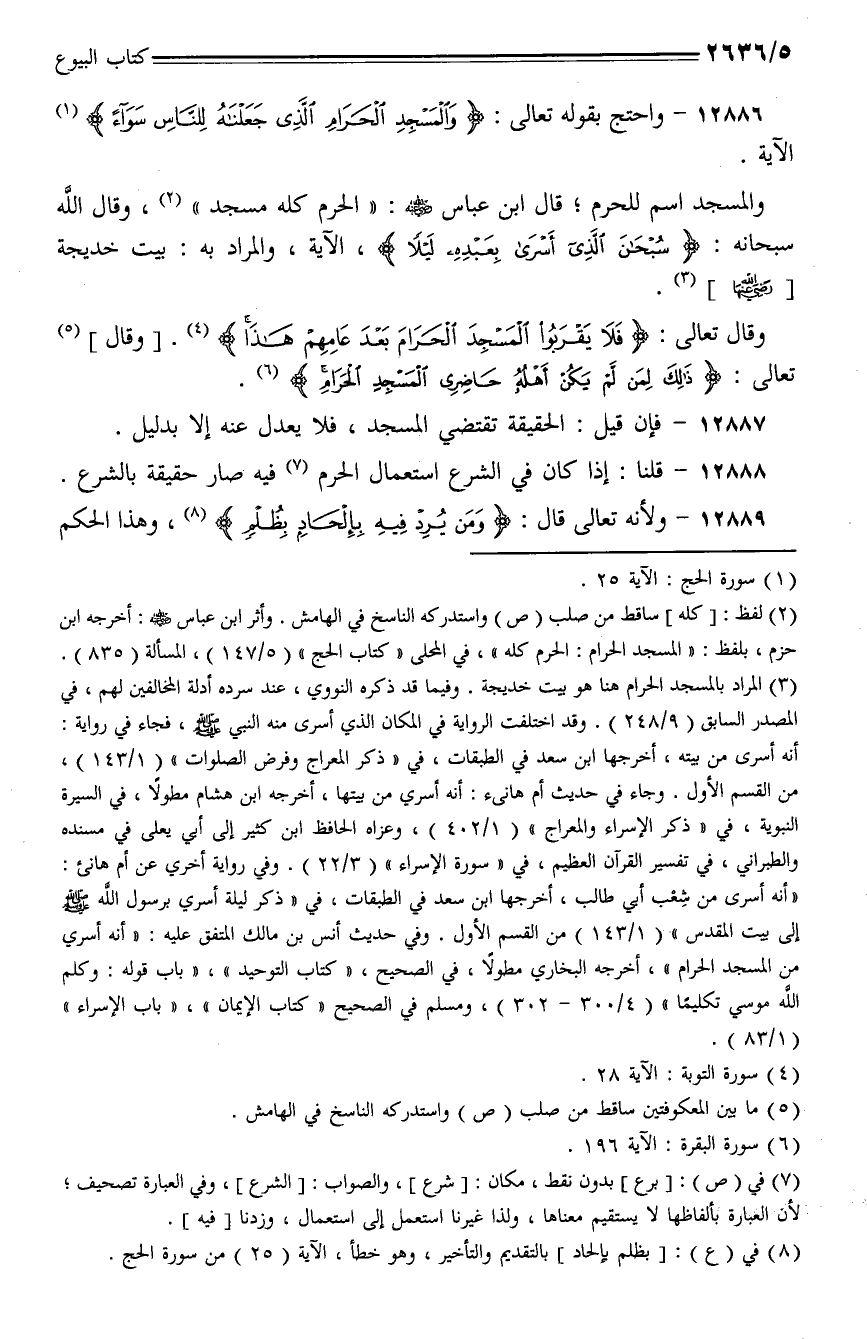 ٢٦٣٦/٥ كتاب البيوع
١٢٨٨٦ - واحتج بقوله تعالى : ﴿ وَٱلْمَسْجِدِ ٱلْحَرَامِ ٱلَّذِى جَعَلْنَـٰهُ لِلنَّاسِ سَوَآءً ﴾ (١)
الآية .
والمسجد اسم للحرم ؛ قال ابن عباس ﵁ : « الحرم كله مسجد » (٢) ، وقال اللَّه
سبحانه : ﴿ سُبْحَـٰنَ ٱلَّذِىٓ أَسْرَىٰ بِعَبْدِهِۦ لَيْلًا ﴾ ، الآية ، والمراد به : بيت خديجة
[ ﵂ ] (٣) .
وقال تعالى : ﴿ فَلَا يَقْرَبُوا۟ ٱلْمَسْجِدَ ٱلْحَرَامَ بَعْدَ عَامِهِمْ هَـٰذَا ۚ ﴾ (٤) . [ وقال ] (٥)
تعالى : ﴿ ذَٰلِكَ لِمَن لَّمْ يَكُنْ أَهْلُهُۥ حَاضِرِى ٱلْمَسْجِدِ ٱلْحَرَامِ ۚ ﴾ (٦) .
١٢٨٨٧ - فإن قيل : الحقيقة تقتضي المسجد ، فلا يعدل عنه إلا بدليل .
١٢٨٨٨ - قلنا : إذا كان في الشرع استعمال الحرم (٧) فيه صار حقيقة بالشرع .
١٢٨٨٩ - ولأنه تعالى قال : ﴿ وَمَن يُرِدْ فِيهِ بِإِلْحَادٍۭ بِظُلْمٍ ﴾ (٨) ، وهذا الحكم
(١) سورة الحج : الآية ٢٥ .
(٢) لفظ : [ كله ] ساقط من صلب ( ص ) واستدركه الناسخ في الهامش . وأثر ابن عباس ﵁ : أخرجه ابن
حزم ، بلفظ : « المسجد الحرام : الحرم كله » ، في المحلى « كتاب الحج » ( ١٤٧/٥ ) ، المسألة ( ٨٣٥ ) .
(٣) المراد بالمسجد الحرام هنا هو بيت خديجة . وفيما قد ذكره النووي ، عند سرده أدلة المخالفين لهم ، في
المصدر السابق ( ٢٤٨/٩ ) . وقد اختلفت الرواية في المكان الذي أسرى منه النبي ﷺ ، فجاء في رواية :
أنه أسرى من بيته ، أخرجها ابن سعد في الطبقات ، في « ذكر المعراج وفرض الصلوات » ( ١٤٣/١ ) ،
من القسم الأول . وجاء في حديث أم هانىء : أنه أسري من بيتها ، أخرجه ابن هشام مطولًا ، في السيرة
النبوية ، في « ذكر الإسراء والمعراج » ( ٤٠٢/١ ) ، وعزاه الحافظ ابن كثير إلى أبي يعلى في مسنده
والطبراني ، في تفسير القرآن العظيم ، في « سورة الإسراء » ( ٢٢/٣ ) . وفي رواية أخري عن أم هانئ :
« أنه أسرى من شِعْب أبي طالب ، أخرجها ابن سعد في الطبقات ، في « ذكر ليلة أسري برسول اللَّه ﷺ
إلى بيت المقدس » ( ١٤٣/١ ) من القسم الأول . وفي حديث أنس بن مالك المتفق عليه : « أنه أسري
من المسجد الحرام » ، أخرجه البخاري مطولًا ، في الصحيح ، « كتاب التوحيد » ، « باب قوله : وكلم
اللَّه موسي تكليمًا » ( ٣٠٠/٤ - ٣٠٢ ) ، ومسلم في الصحيح « كتاب الإيمان » ، « باب الإسراء »
( ٨٣/١ ) .
(٤) سورة التوبة : الآية ٢٨ .
(٥) ما بين المعكوفتين ساقط من صلب ( ص ) واستدركه الناسخ في الهامش .
(٦) سورة البقرة : الآية ١٩٦ .
(٧) في ( ص ) : [ برع ] بدون نقط ، مكان : [ شرع ] ، والصواب : [ الشرع ] ، وفي العبارة تصحيف ؛
لأن العبارة بألفاظها لا يستقيم معناها ، ولذا غيرنا استعمل إلى استعمال ، وزدنا [ فيه ] .
(٨) في ( ع ) : [ بظلم بإلحاد ] بالتقديم والتأخير ، وهو خطأ ، الآية ( ٢٥ ) من سورة الحج .